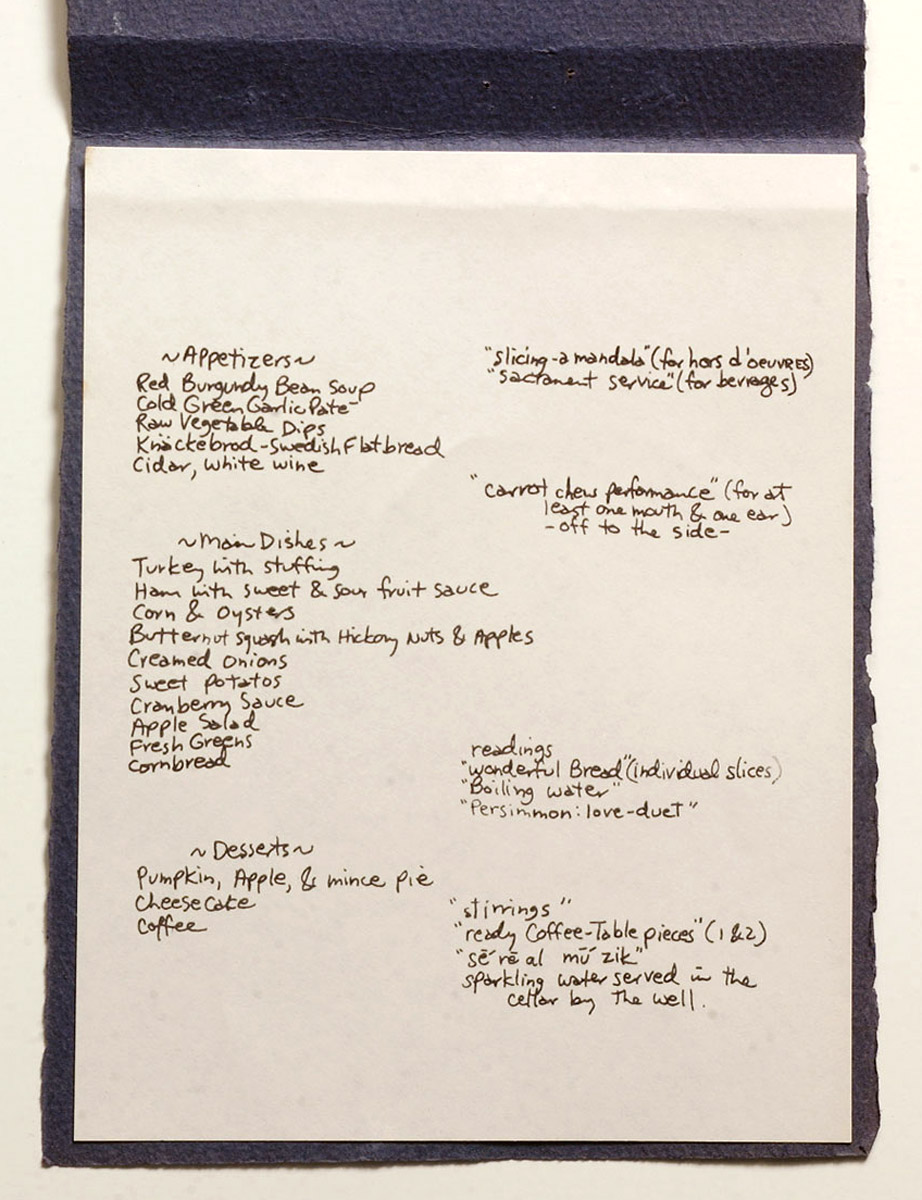 ~Appetizers~
Red Burgundy Bean Soup
Cold Green Garlic Pate
Raw Vegetable Dips
Knäckebrod-Swedish Flatbread
Cidar, white wine
"slicing-a mandala" (for hors d'oeuvres)
"sacrament service" (for bevrages)
"carrot chew performance" (for at
least one mouth & one ear)
-off to the side-
~Main Dishes~
Turkey with stuffing
Ham with sweet & sour fruit sauce
Corn & Oysters
Butternut squash with Hickory Nuts & Apples
Creamed Onions
Sweet Potatos
Cranberry Sauce
Apple Salad
Fresh Greens
Cornbread
readings
"wonderful Bread" (individual slices)
"Boiling water"
"Persimmon: love-duet"
~Desserts~
Pumpkin, Apple, & mince pie
Cheese Cake
Coffee
"stirrings"
"ready Coffee-Table pieces" (1 & 2)
"sē′rē al mū′zik"
sparkling water served in the
cellar by the well.